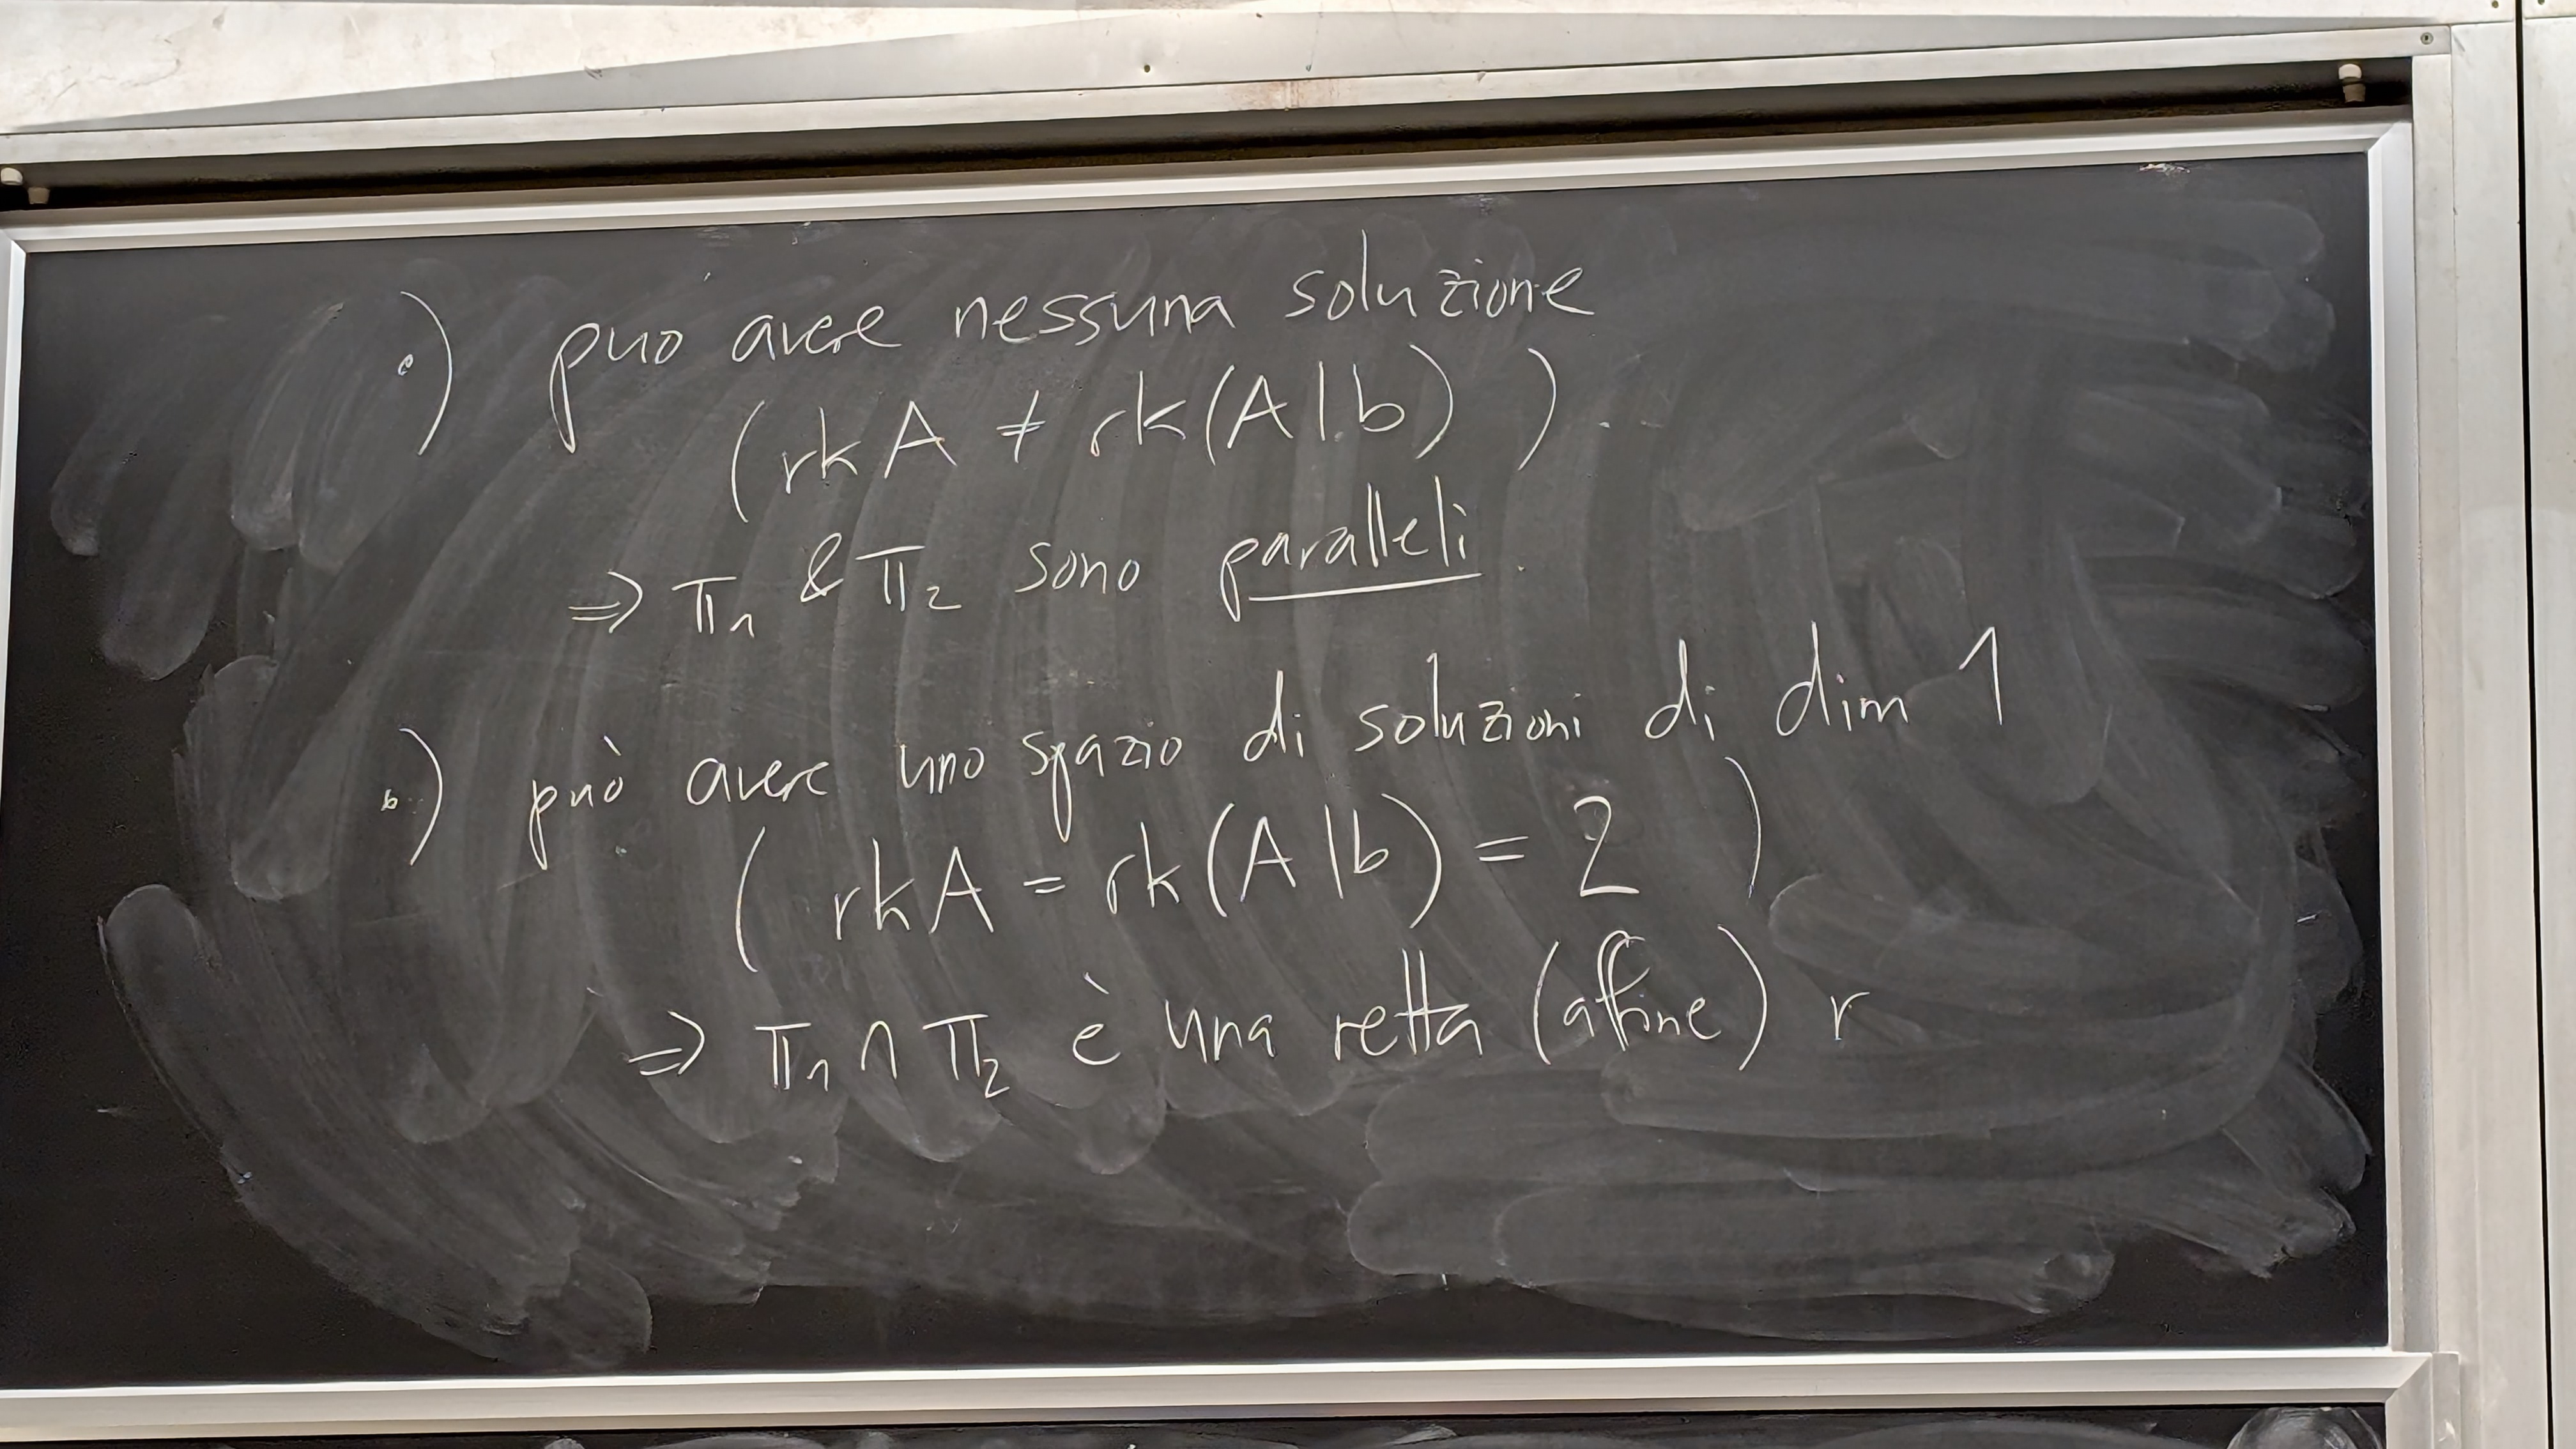 •) può avere nessuna soluzione
(rk A ≠ rk(A|b)).
⇒ π₁ & π₂ sono paralleli.
•) può avere uno spazio di soluzioni di dim 1
(rk A = rk(A|b) = 2)
⇒ π₁ ∩ π₂ è una retta (affine) r